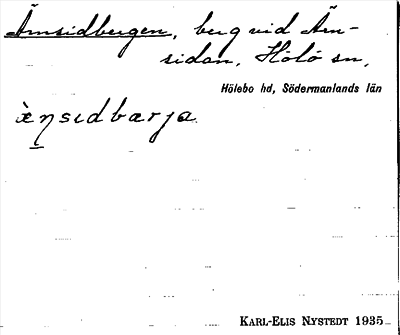 Ämsidbergen, berg vid Äm-
sidan, Hölö sn,
Hölebo hd, Södermanlands län
æ̀ŋsɩdbærja.
KARL-ELIS NYSTEDT 1935